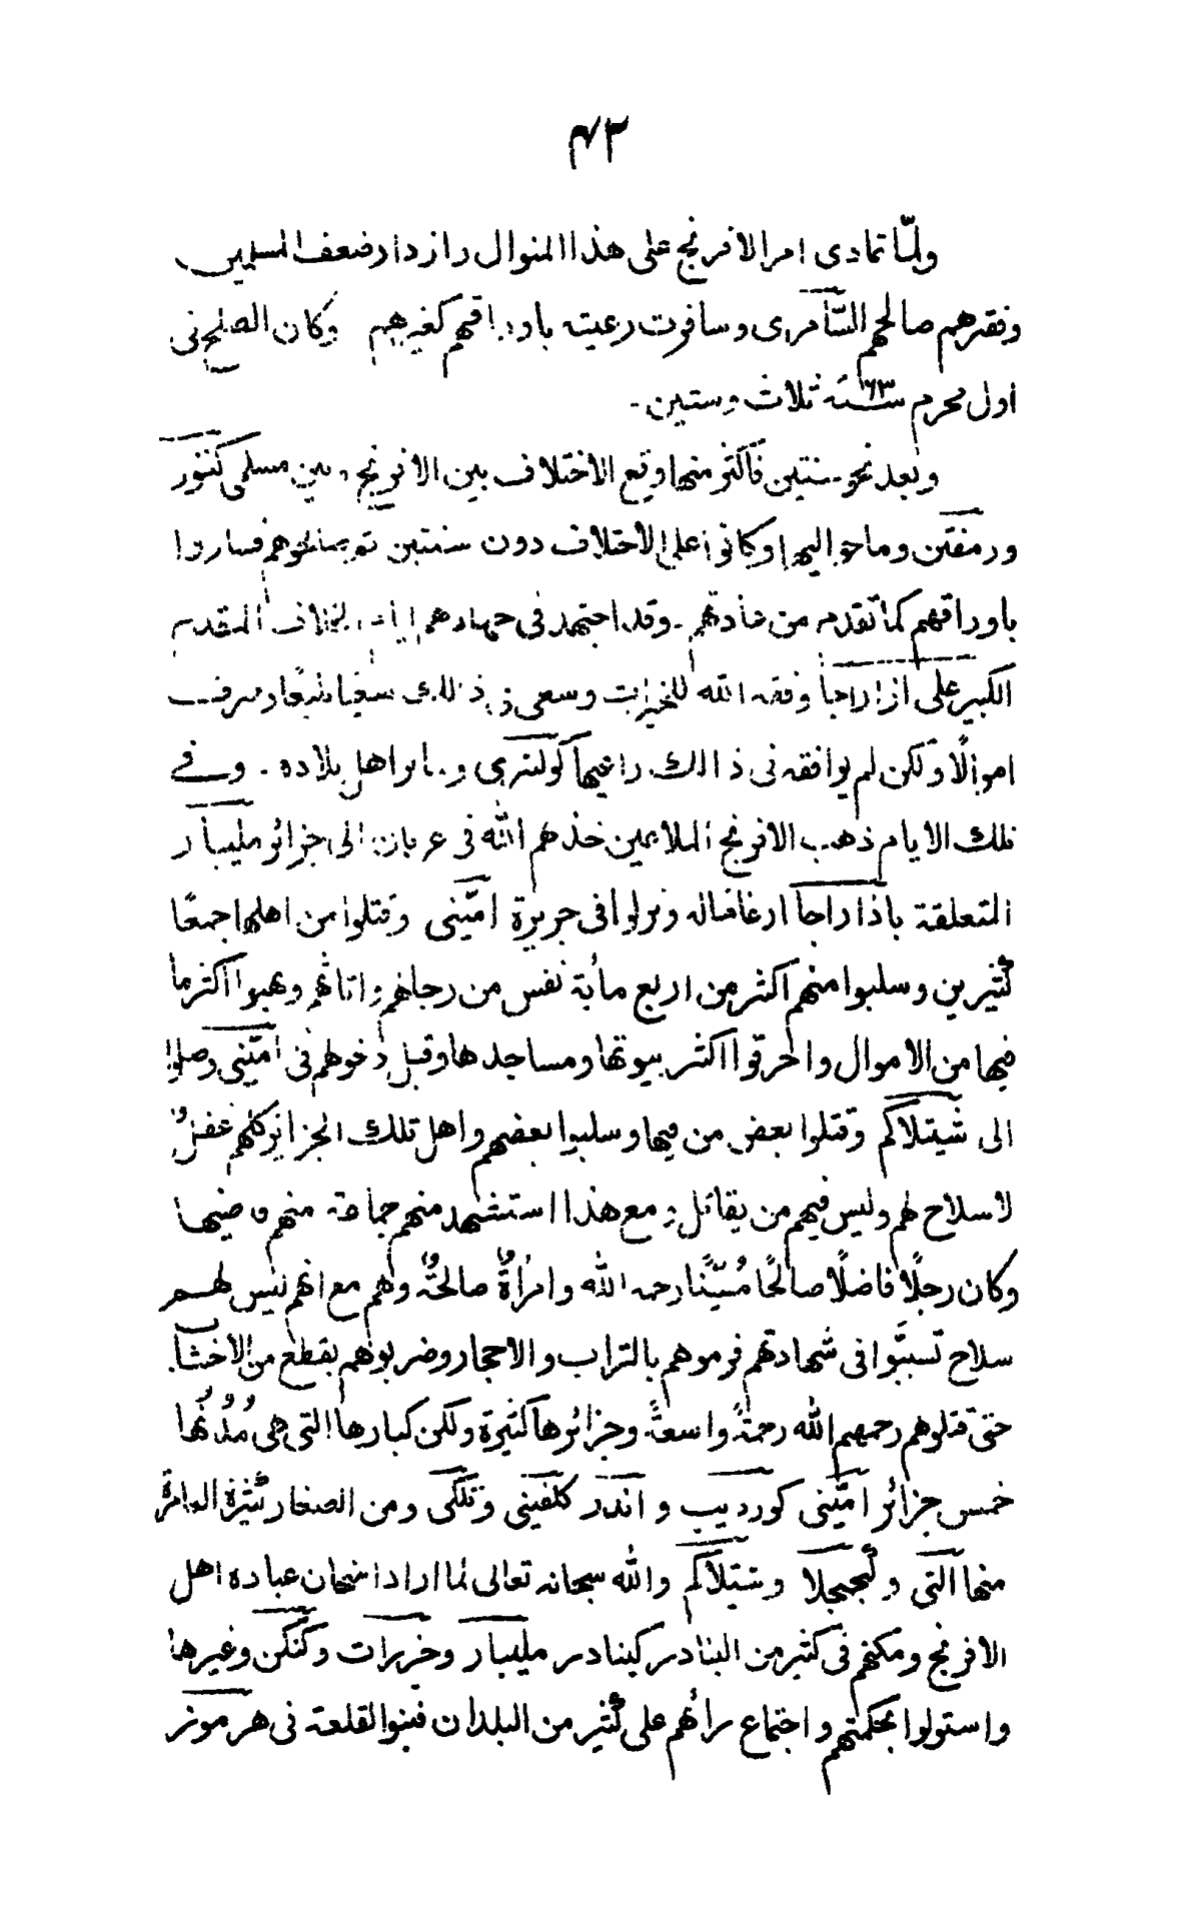 ٤٣
ولمّا تمادى امر الافرنج على هذا المنوال وازداد ضعف المسلمين
وفقرهم صالحهم السّامرى وسافرت رعيته باوراقهم كغيرهم وكان الصلح فى
اول محرم سنة ٩٦٣ ثلاث وستين
وبعد نحو سنتين فأكثر منها وقع الاختلاف بين الافرنج وبين مسلمى كننور
ودرمفتن وما حواليها وكانوا على الاختلاف دون سنتين ثم صالحوهم فساروا
باوراقهم كما تقدم من عادتهم وقد اجتهد فى جهادهم الخلاف المقدم
الكبير على اذاراجا وفقه الله للخيرات وسعى فى ذالك سعيا بليغا وصرف
اموالًا ولكن لم يوافقه فى ذالك راعيها كولترى وسائر اهل بلاده . وفے
تلك الايام ذهب الافرنج الملاعين خذلهم الله فى غربان الى جزائر مليبار
المتعلقة باذاراجا ارغاما له ونزلوا فى جزيرة امّينى وقتلوا من اهلها جمعًا
كثيرين وسلبوا منهم اكثر من اربع مأية نفس من رجالهم واناثهم ونهبوا اكثر ما
فيها من الاموال واحرقوا اكثر بيوتها ومساجدها وقبل دخولهم فى امّينى وصلوا
الى شيتلاكم وقتلوا بعض من فيها وسلبوا بعضهم واهل تلك الجزائر كلهم غفلٌ
لا سلاح لهم وليس فيهم من يقاتل ومع هذا استشهد منهم جماعة منهم قاضيها
وكان رجلًا فاضلًا صالحًا مُسِنًّا رحمه الله وامرأةٌ صالحةٌ وهم مع انهم ليس لهم
سلاح تسبّبوا فى شهادتهم فرموهم بالتراب والاحجار وضربوهم بقطع من الاخشاب
حتى قتلوهم رحمهم الله رحمةً واسعةً وجزائرها كثيرة ولكن كبارها التى هى مُدُنُها
خمس جزائر امّينى كورديب و اندر كلفينى وتلكى ومن الصغار كثيرة العامرة
منها اكتى و كنجمجلا وشيتلاكم والله سبحانه تعالى لما اراد امتحان عباده اهل
الافرنج ومكنهم فى كثير من البنادر كبنادر مليبار وجزرات وكنكن وغيرها
واستولوا بحكمتهم واجتماع رائهم على كثير من البلدان فبنوا القلعة فى هرموز